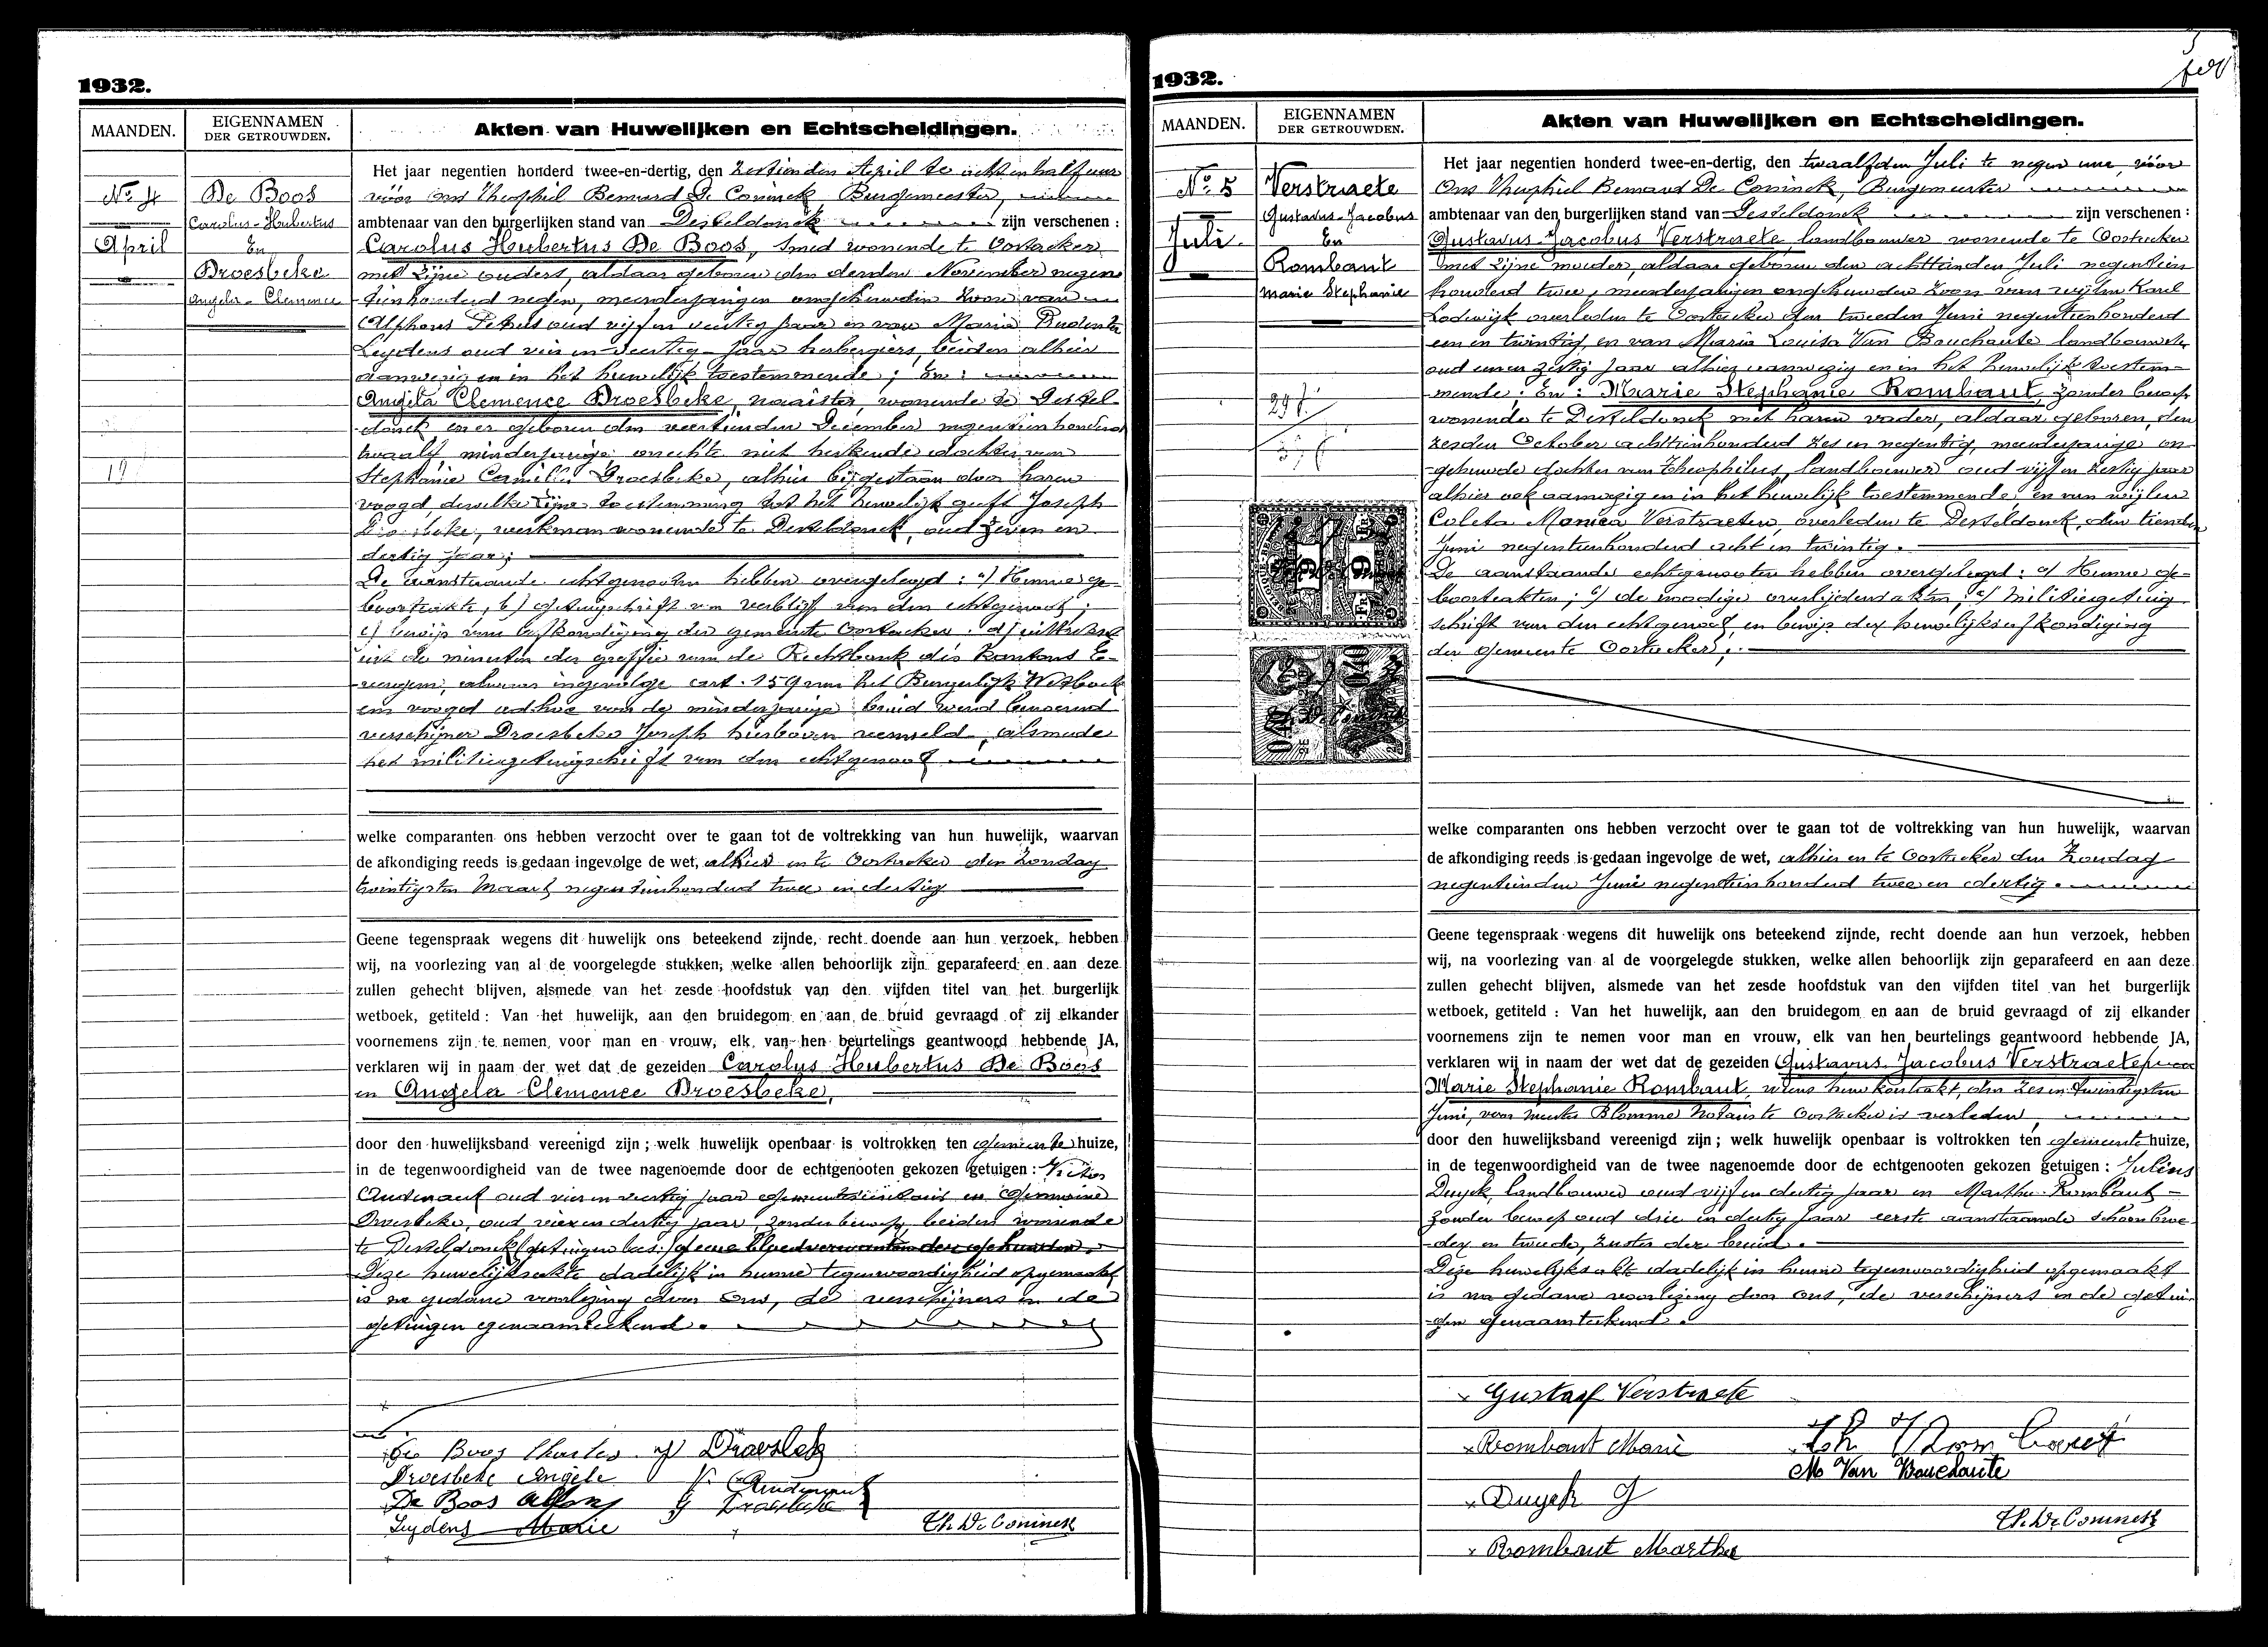 1932.
MAANDEN.
EIGENNAMEN
DER GETROUWDEN.
Akten van Huwelijken en Echtscheidingen.
No 4
April
De Boos
Carolus-Hubertus
En
Droesbeke
Angela-Clemence
Het jaar negentien honderd twee-en-dertig, den zestienden April te acht en half uur
vóór ons Theophiel Bernard De Coninck Burgemeester,
ambtenaar van den burgerlijken stand van Desteldonck zijn verschenen :
Carolus Hubertus De Boos, smid wonende te Oostacker
met zijne ouders, aldaar geboren den derden November negen-
tienhonderd negen, meerderjarigen ongehuwden zoon van
Alphons Petrus oud vijf en veertig jaar en van Maria Prudentia
Leydens oud vier en veertig jaar herbergiers, beiden alhier
aanwezig en in het huwelijk toestemmende; En :
Angela Clemence Droesbeke, naaister, wonende te Destel-
donck en er geboren den veertienden December negentienhonderd
twaalf, minderjarige onechte niet herkende dochter van
Stephanie Cornelia Droesbeke, alhier bijgestaan door haren
voogd, dewelke zijne toestemming tot het huwelijk geeft Joseph
Droesbeke, werkman wonende te Desteldonck, oud zeven en
dertig jaar;
De aanstaande echtgenooten hebben overgelegd : a) Hunne ge-
boorteakte, b) getuigschrift van verblijf van den echtgenoot;
c) bewijs van afkondiging der gemeente Oostacker. d) uittreksel
uit de minuten der greffie van de Rechtbank des Kantons E-
vergem, alwaar ingevolge art. 159 van het Burgerlijk Wetboek
een voogd ad hoc van de minderjarige bruid werd benoemd
verschijner Droesbeke Joseph hierboven vermeld, alsmede
het militiegetuigschrift van den echtgenoot
welke comparanten ons hebben verzocht over te gaan tot de voltrekking van hun huwelijk, waarvan
de afkondiging reeds is gedaan ingevolge de wet, alhier en te Oostacker den Zondag
twintigsten Maart negentienhonderd twee en dertig
Geene tegenspraak wegens dit huwelijk ons beteekend zijnde, recht doende aan hun verzoek, hebben
wij, na voorlezing van al de voorgelegde stukken, welke allen behoorlijk zijn geparafeerd en aan deze
zullen gehecht blijven, alsmede van het zesde hoofdstuk van den vijfden titel van het burgerlijk
wetboek, getiteld : Van het huwelijk, aan den bruidegom en aan de bruid gevraagd of zij elkander
voornemens zijn te nemen, voor man en vrouw, elk van hen beurtelings geantwoord hebbende JA,
verklaren wij in naam der wet dat de gezeiden Carolus Hubertus De Boos
en Angela Clemence Droesbeke,
door den huwelijksband vereenigd zijn ; welk huwelijk openbaar is voltrokken ten gemeentehuize,
in de tegenwoordigheid van de twee nagenoemde door de echtgenooten gekozen getuigen : Victor
Audenaert oud vier en veertig jaar gemeentesecretaris en Germaine
Droesbeke, oud vier en dertig jaar, zonder beroep, beiden wonende
te Desteldonck
Deze huwelijksakte dadelijk in hunne tegenwoordigheid opgemaakt
is na gedane voorlezing door ons, de verschijners en de
getuigen genaamteekend.
De Boos Charles
J Droesbeke
Droesbeke Angele
V. Audenaert
De Boos Alfons
G Droesbeke
Leydens Marie
Th. De Coninck
1932.
5
MAANDEN.
EIGENNAMEN
DER GETROUWDEN.
Akten van Huwelijken en Echtscheidingen.
No 5
Juli.
Verstraete
Gustavus-Jacobus
En
Rombaut
Marie Stephanie
Het jaar negentien honderd twee-en-dertig, den twaalfden Juli te negen ure, vóór
Ons Theophiel Bernard De Coninck, Burgemeester
ambtenaar van den burgerlijken stand van Desteldonck zijn verschenen :
Gustavus Jacobus Verstraete landbouwer wonende te Oostacker
met zijne moeder, aldaar geboren den achttienden Juli negentien
honderd twee, meerderjarigen ongehuwden zoon van wijlen Karel
Lodewijk overleden te Oostacker den tweeden Juni negentienhonderd
een en twintig, en van Maria Louisa Van Bouchaute landbouwster
oud een en zestig jaar alhier aanwezig en in het huwelijk toestem-
mende; En : Marie Stephanie Rombaut, zonder beroep
wonende te Desteldonck met haren vader, aldaar geboren, den
zesden October achttienhonderd zes en negentig, meerderjarige on-
gehuwde dochter van Theophilus, landbouwer oud vijf en zestig jaar
alhier ook aanwezig en in het huwelijk toestemmende, en van wijlen
Coleta Monica Verstraeten, overleden te Desteldonck, den tienden
Juni negentienhonderd acht en twintig.
De aanstaande echtgenooten hebben overgelegd : a) Hunne ge-
boorteakten; b) de noodige overlijdensakten, c) militiegetuig-
schrift van den echtgenoot, en bewijs der huwelijksafkondiging
der gemeente Oostacker;
welke comparanten ons hebben verzocht over te gaan tot de voltrekking van hun huwelijk, waarvan
de afkondiging reeds is gedaan ingevolge de wet, alhier en te Oostacker den Zondag
negentienden Juni negentienhonderd twee en dertig.
Geene tegenspraak wegens dit huwelijk ons beteekend zijnde, recht doende aan hun verzoek, hebben
wij, na voorlezing van al de voorgelegde stukken, welke allen behoorlijk zijn geparafeerd en aan deze
zullen gehecht blijven, alsmede van het zesde hoofdstuk van den vijfden titel van het burgerlijk
wetboek, getiteld : Van het huwelijk, aan den bruidegom en aan de bruid gevraagd of zij elkander
voornemens zijn te nemen voor man en vrouw, elk van hen beurtelings geantwoord hebbende JA,
verklaren wij in naam der wet dat de gezeiden Gustavus Jacobus Verstraete
Marie Stephanie Rombaut, wiens huwkontrakt, den zes en twintigsten
Juni, voor meester Blomme Notaris te Oostacker is verleden,
door den huwelijksband vereenigd zijn ; welk huwelijk openbaar is voltrokken ten gemeentehuize,
in de tegenwoordigheid van de twee nagenoemde door de echtgenooten gekozen getuigen : Julius
Duyck, landbouwer oud vijf en dertig jaar en Martha Rombaut
zonder beroep oud drie en dertig jaar eerste aanstaande schoonbroe-
der en tweede, zuster der bruid.
Deze huwelijksakt dadelijk in hunne tegenwoordigheid opgemaakt
is na gedane voorlezing door ons, de verschijners en de getui-
gen genaamteekend.
Gustaaf Verstraete
Rombaut Marie
Th Rombaut
M Van Bouchaute
Duyck J
Th. De Coninck
Rombaut Martha